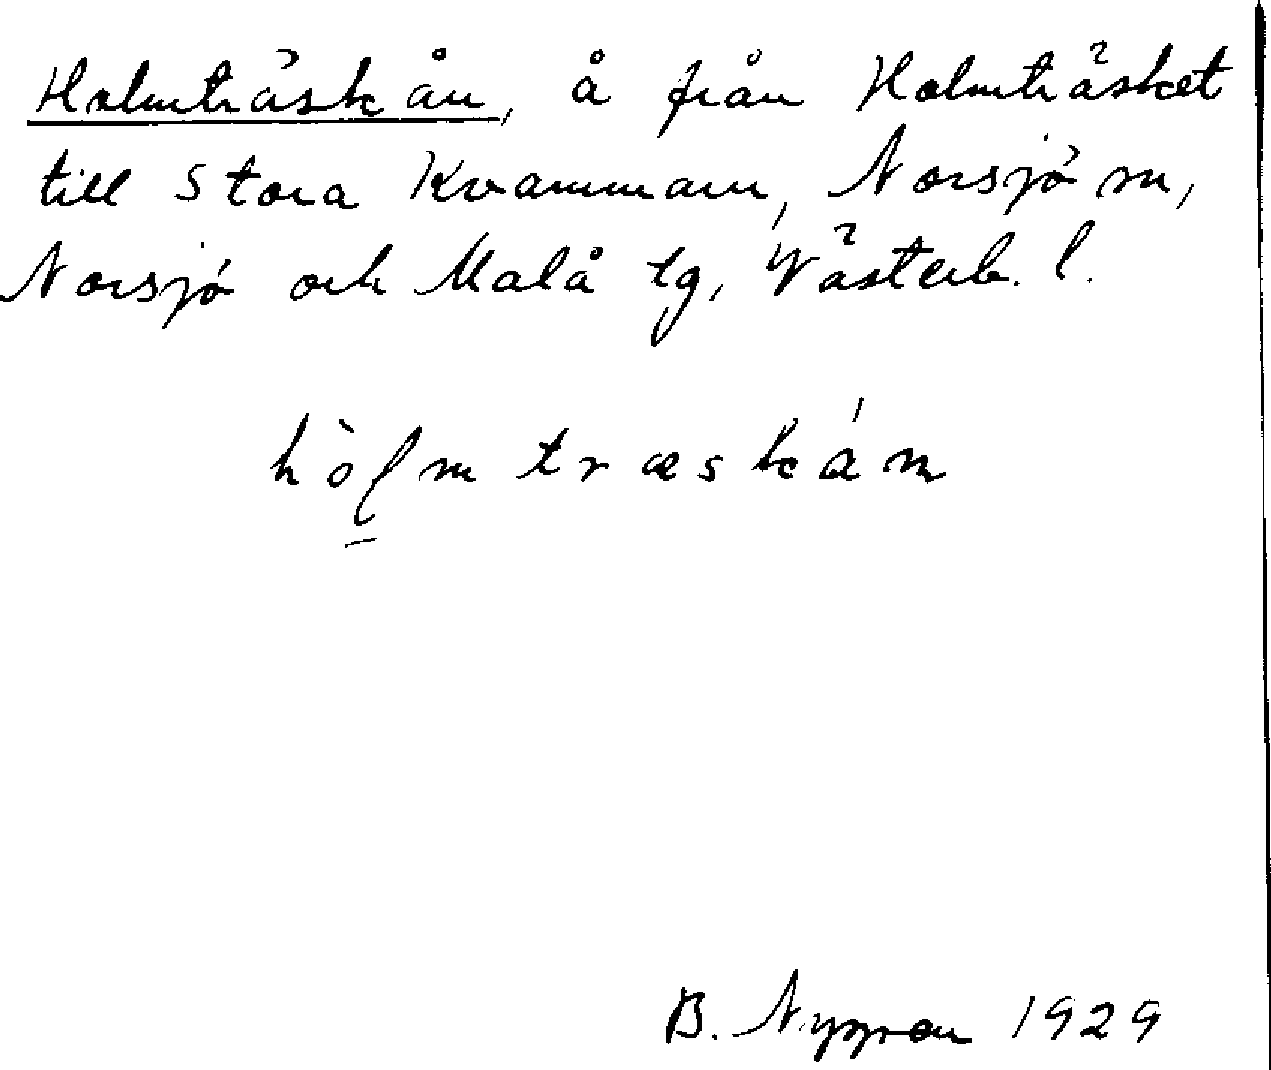 Holmträskån, å från Holmträsket
till Stora Kvammarn, Norsjö sn,
Norsjö och Malå tg, Västerb. l.
hòlm træskán
B. Nygren 1929